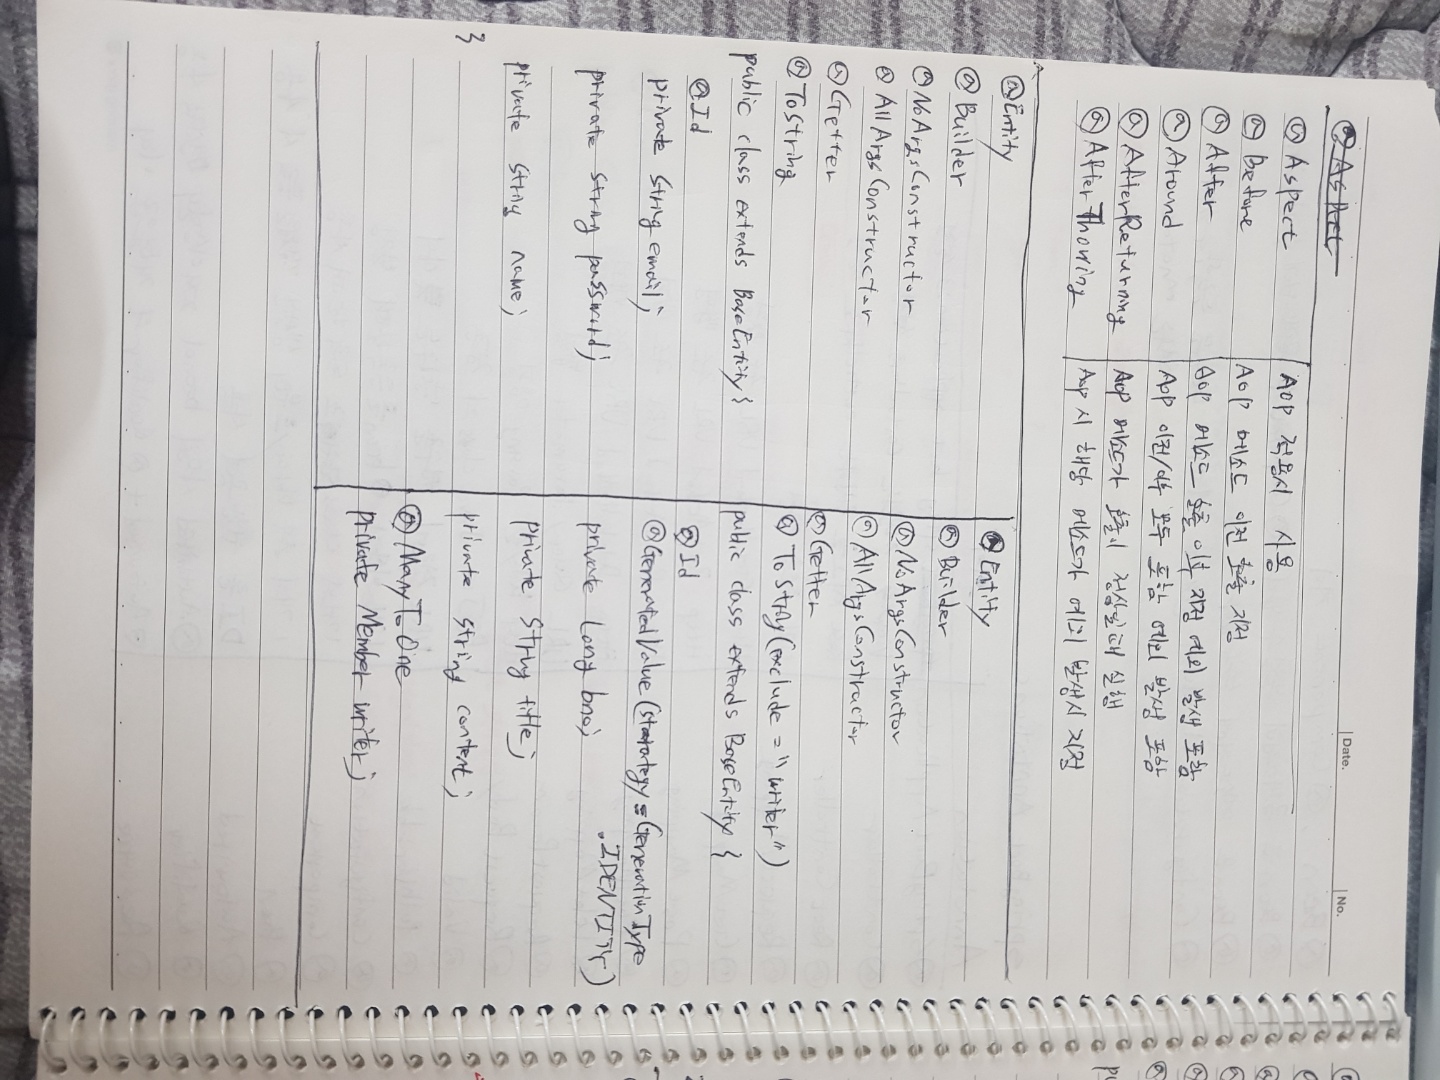 Date.
No.
@Aspect
@Aspect AOP 적용시 사용
@Before AOP 메소드 이전 호출 지정
@After AOP 메소드 호출 이후 지정 예외 발생 포함
@Around AOP 이전/이후 모두 포함 예외 발생 포함
@AfterReturning AOP 메소드가 호출시 정상일때 실행
@AfterThowing AOP 시 해당 메소드가 예외 발생시 지정
@Entity
@Builder
@NoArgsConstructor
@AllArgsConstructor
@Getter
@ToString
public class extends BaseEntity {
@Id
private String email;
private String password;
private String name;
}
@Entity
@Builder
@NoArgsConstructor
@AllArgsConstructor
@Getter
@ToString(exclude = "writer")
public class extends BaseEntity {
@Id
@GeneratedValue(strategy = GenerationType
.IDENTITY)
private Long bno;
private String title;
private String content;
@ManyToOne
private Member writer;